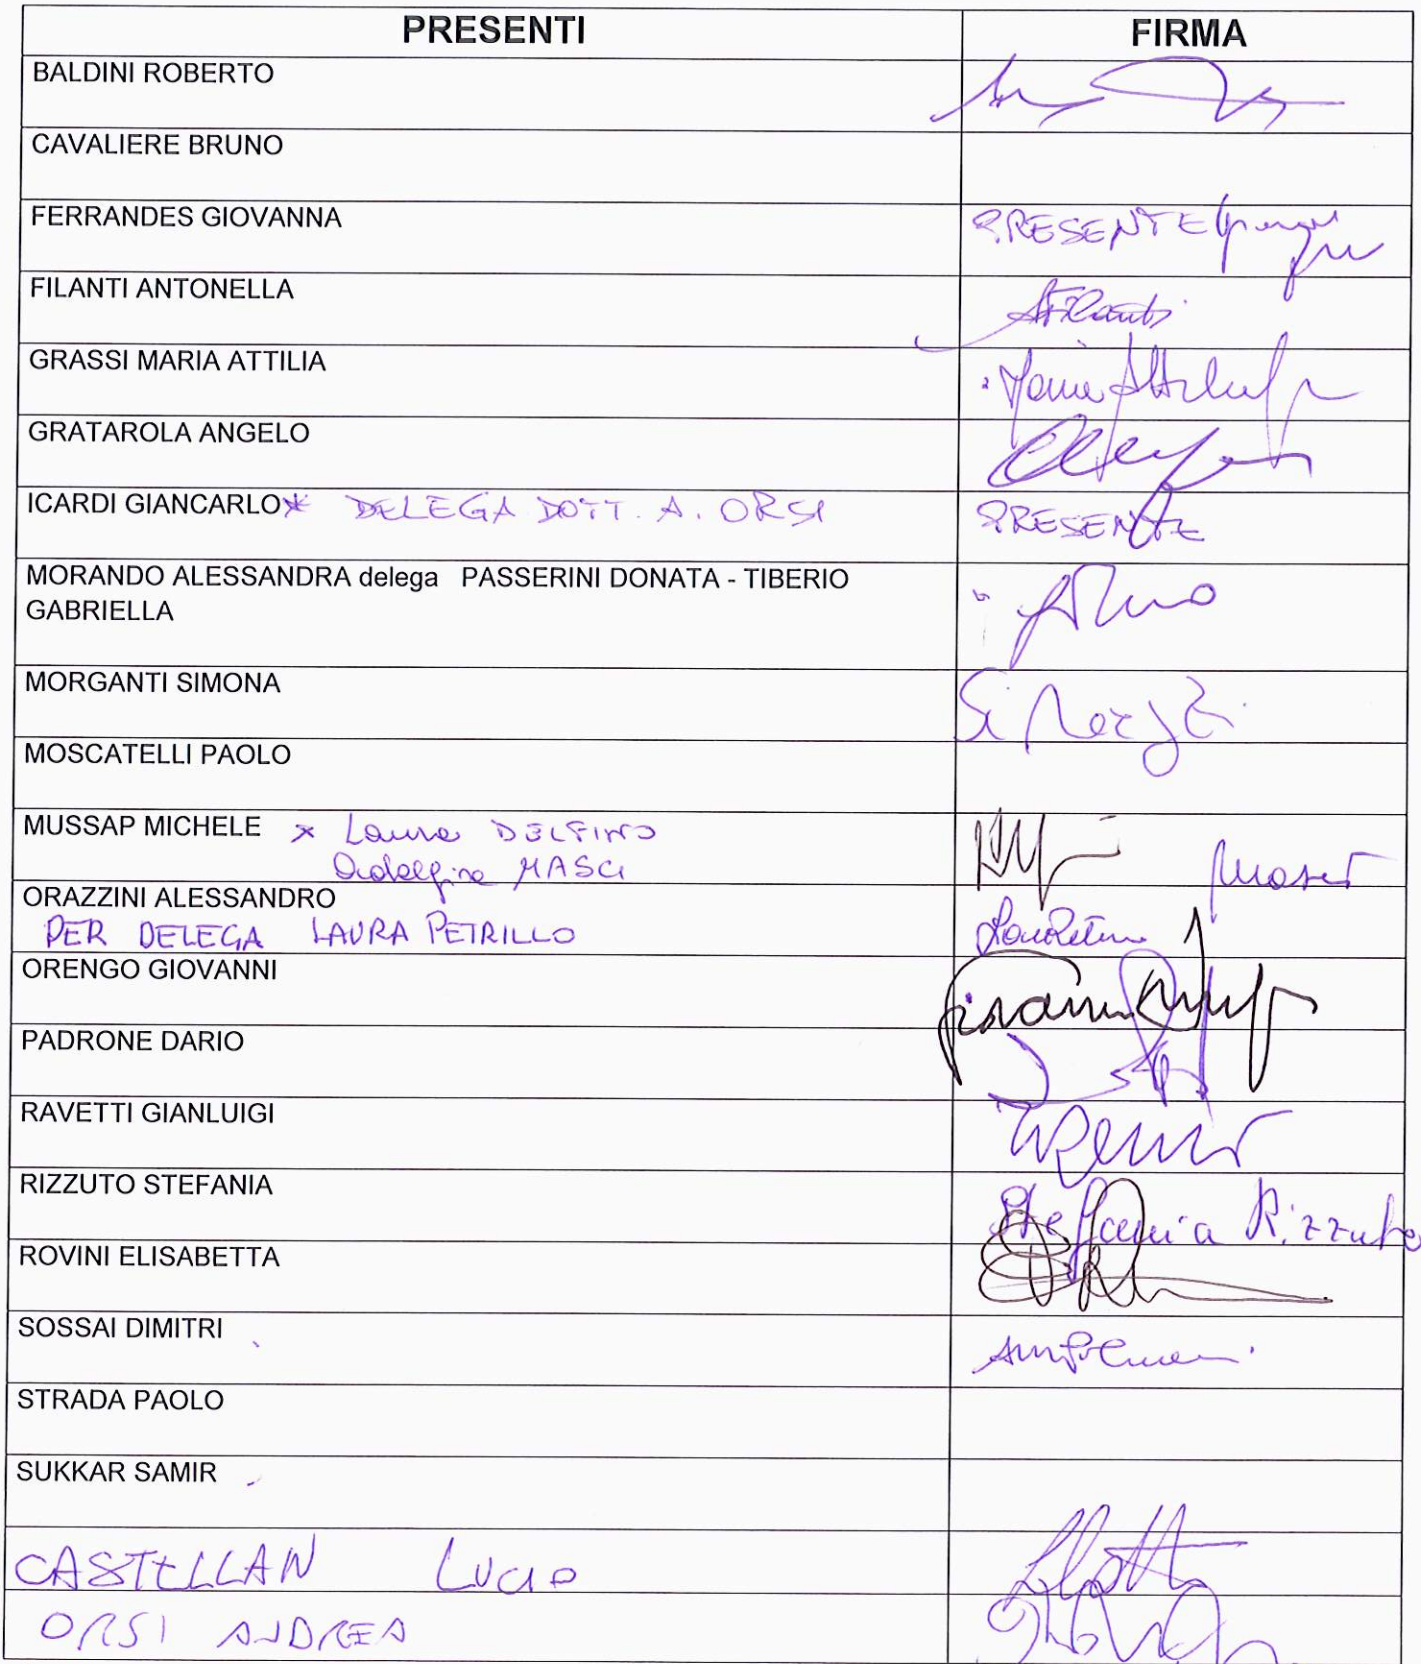 PRESENTI FIRMA
BALDINI ROBERTO
CAVALIERE BRUNO
FERRANDES GIOVANNA PRESENTE
FILANTI ANTONELLA AFilanti
GRASSI MARIA ATTILIA Maria Attilia
GRATAROLA ANGELO
ICARDI GIANCARLO* DELEGA DOTT. A. ORSI PRESENTE
MORANDO ALESSANDRA delega PASSERINI DONATA - TIBERIO
GABRIELLA
MORGANTI SIMONA
MOSCATELLI PAOLO
MUSSAP MICHELE x Laura DELFINO
MASCI
ORAZZINI ALESSANDRO
PER DELEGA LAURA PETRILLO
ORENGO GIOVANNI Giovanni
PADRONE DARIO
RAVETTI GIANLUIGI
RIZZUTO STEFANIA Stefania Rizzuto
ROVINI ELISABETTA
SOSSAI DIMITRI
STRADA PAOLO
SUKKAR SAMIR
CASTELLAN LUCIO
ORSI ANDREA